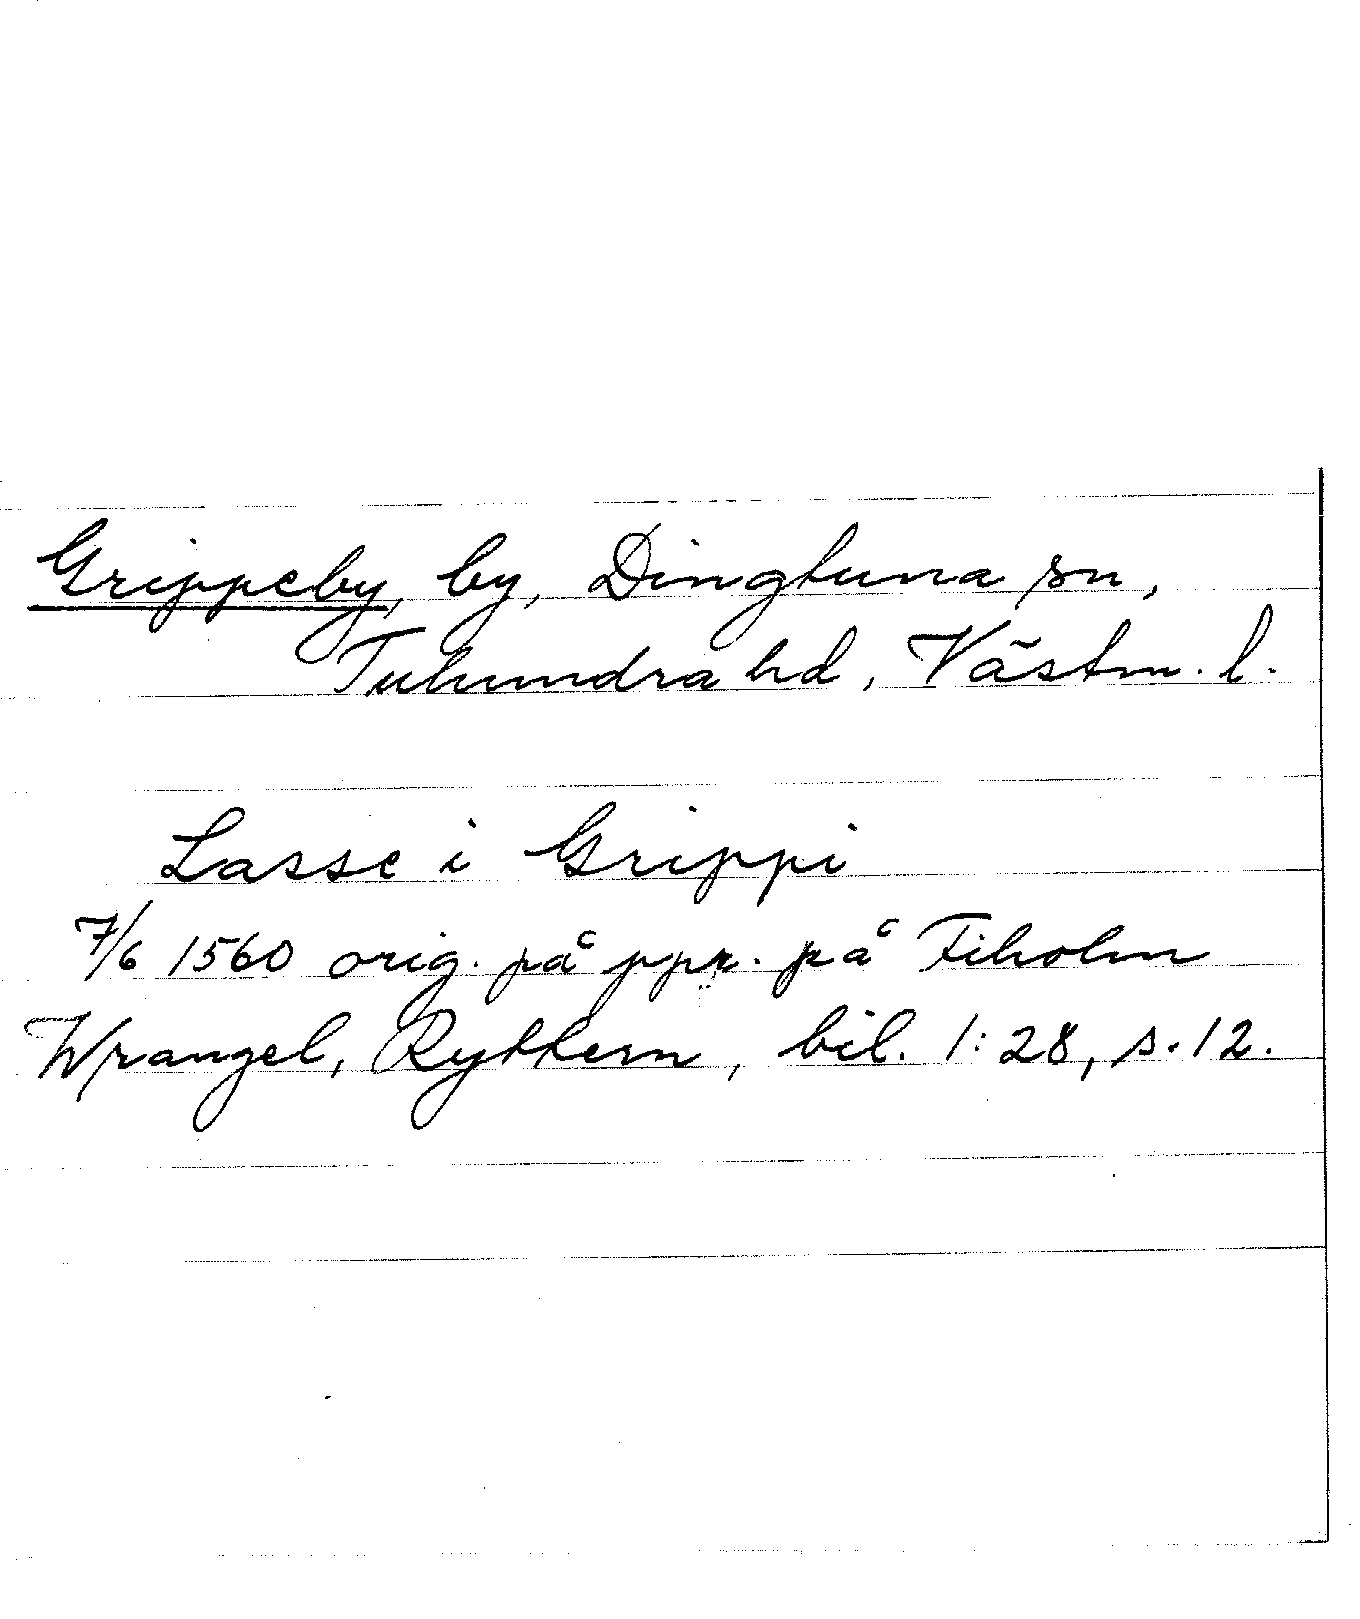 Grippeby, by, Dingtuna sn,
Tuhundra hd, Västm. l.
Lasse i Grippi
7/6 1560 orig. på ppr. på Fiholm
Wrangel, Ryttern, bil. 1:28, s. 12.